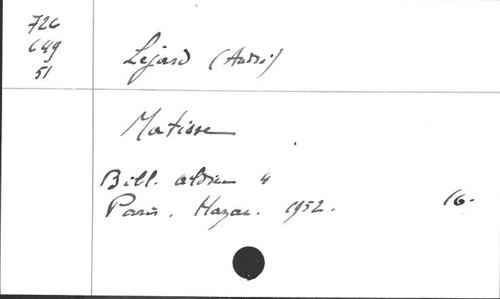 726
649
51
Lejard (André)
Matisse
Bibl. aldine 4
Paris. Hazan. 1952. 16.